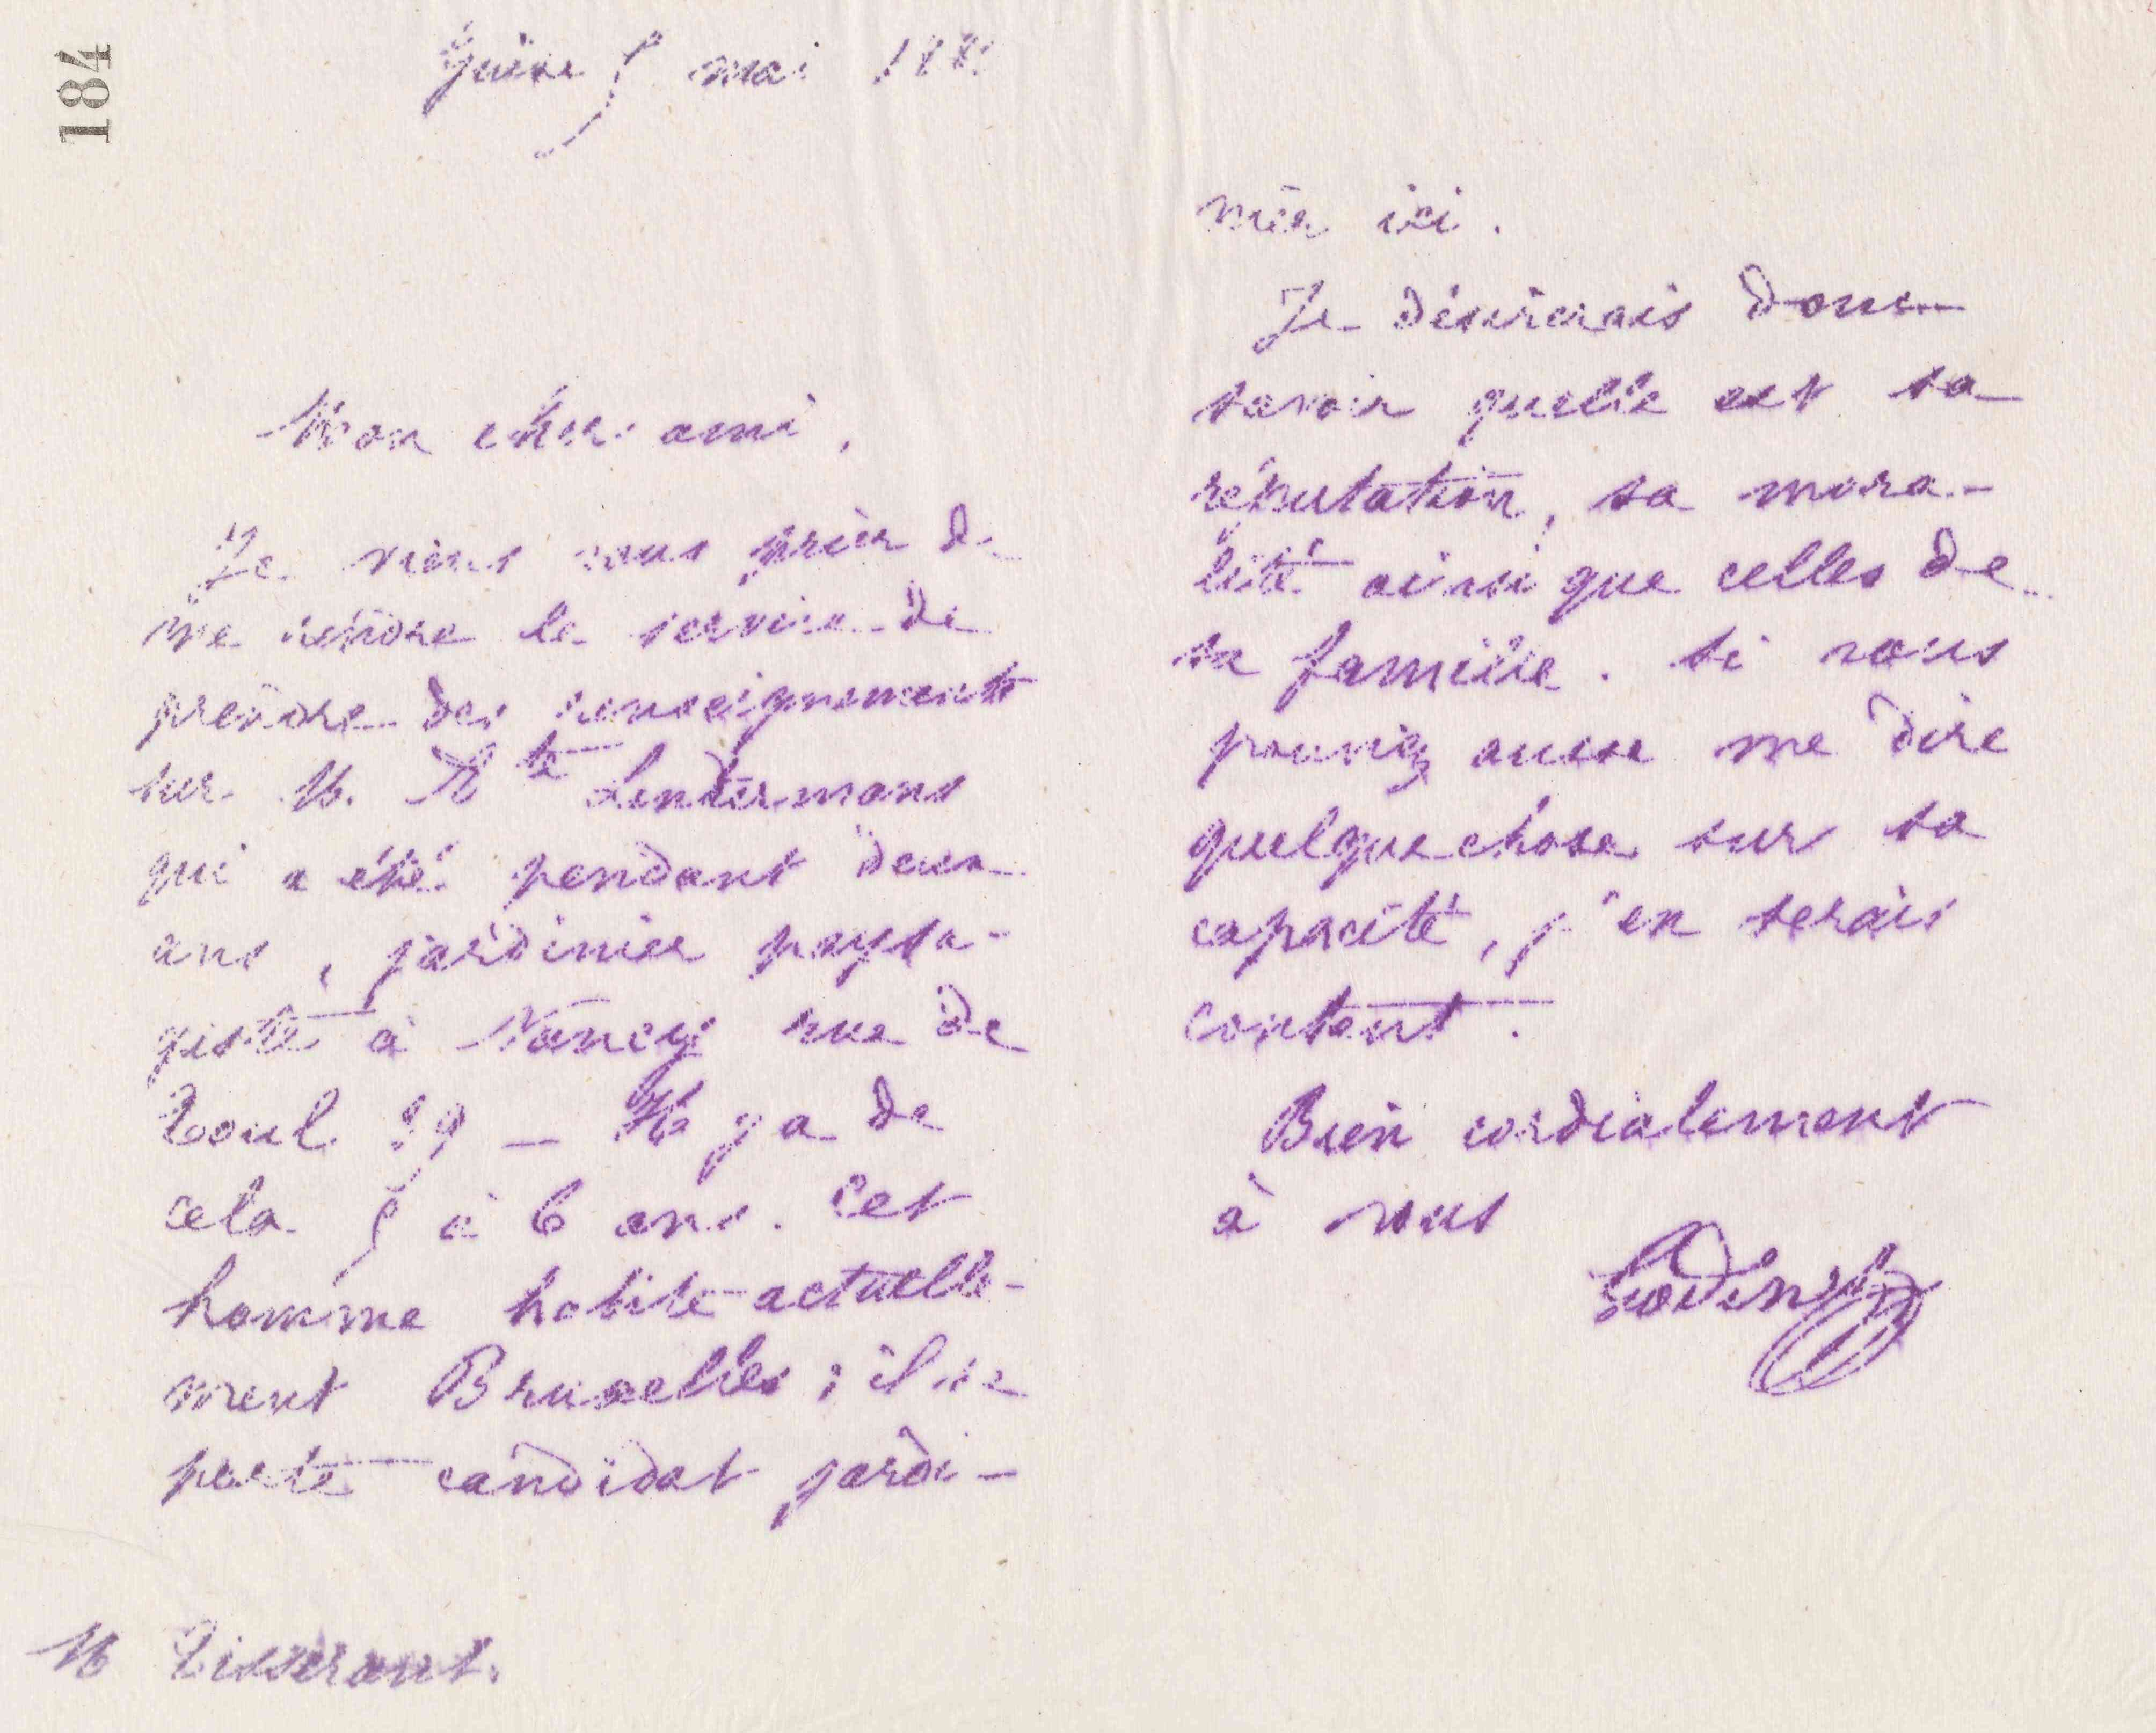 184
Guise 5 mai 188
Mon cher ami,
Je viens vous prier de
me rendre le service de
prendre des renseignements
sur M. Lendermans
qui a été pendant deux
ans, jardinier paysa-
giste à Nancy rue de
Toul 39 — Il y a de
cela 5 à 6 ans. Cet
homme habite actuelle-
ment Bruxelles ; il se
porte candidat jardi-
nier ici.
Je désirerais donc
savoir quelle est sa
réputation, sa mora-
lité ainsi que celles de
sa famille. Si vous
pouviez aussi me dire
quelque chose sur sa
capacité, j'en serais
content.
Bien cordialement
à vous
Godin
M Tisserant.